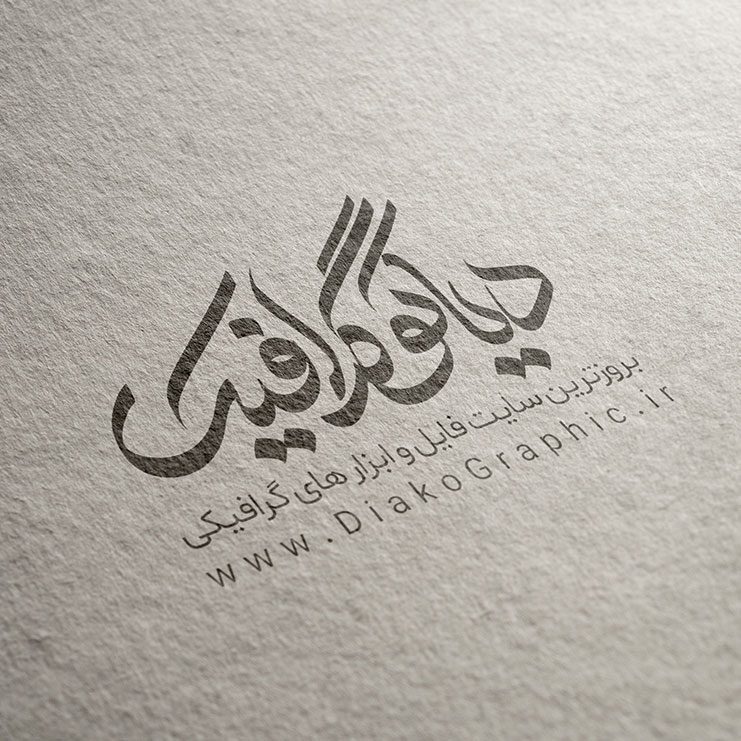 دیاکوگرافیک
بروزترین سایت فایل و ابزار های گرافیکی
www.DiakoGraphic.ir